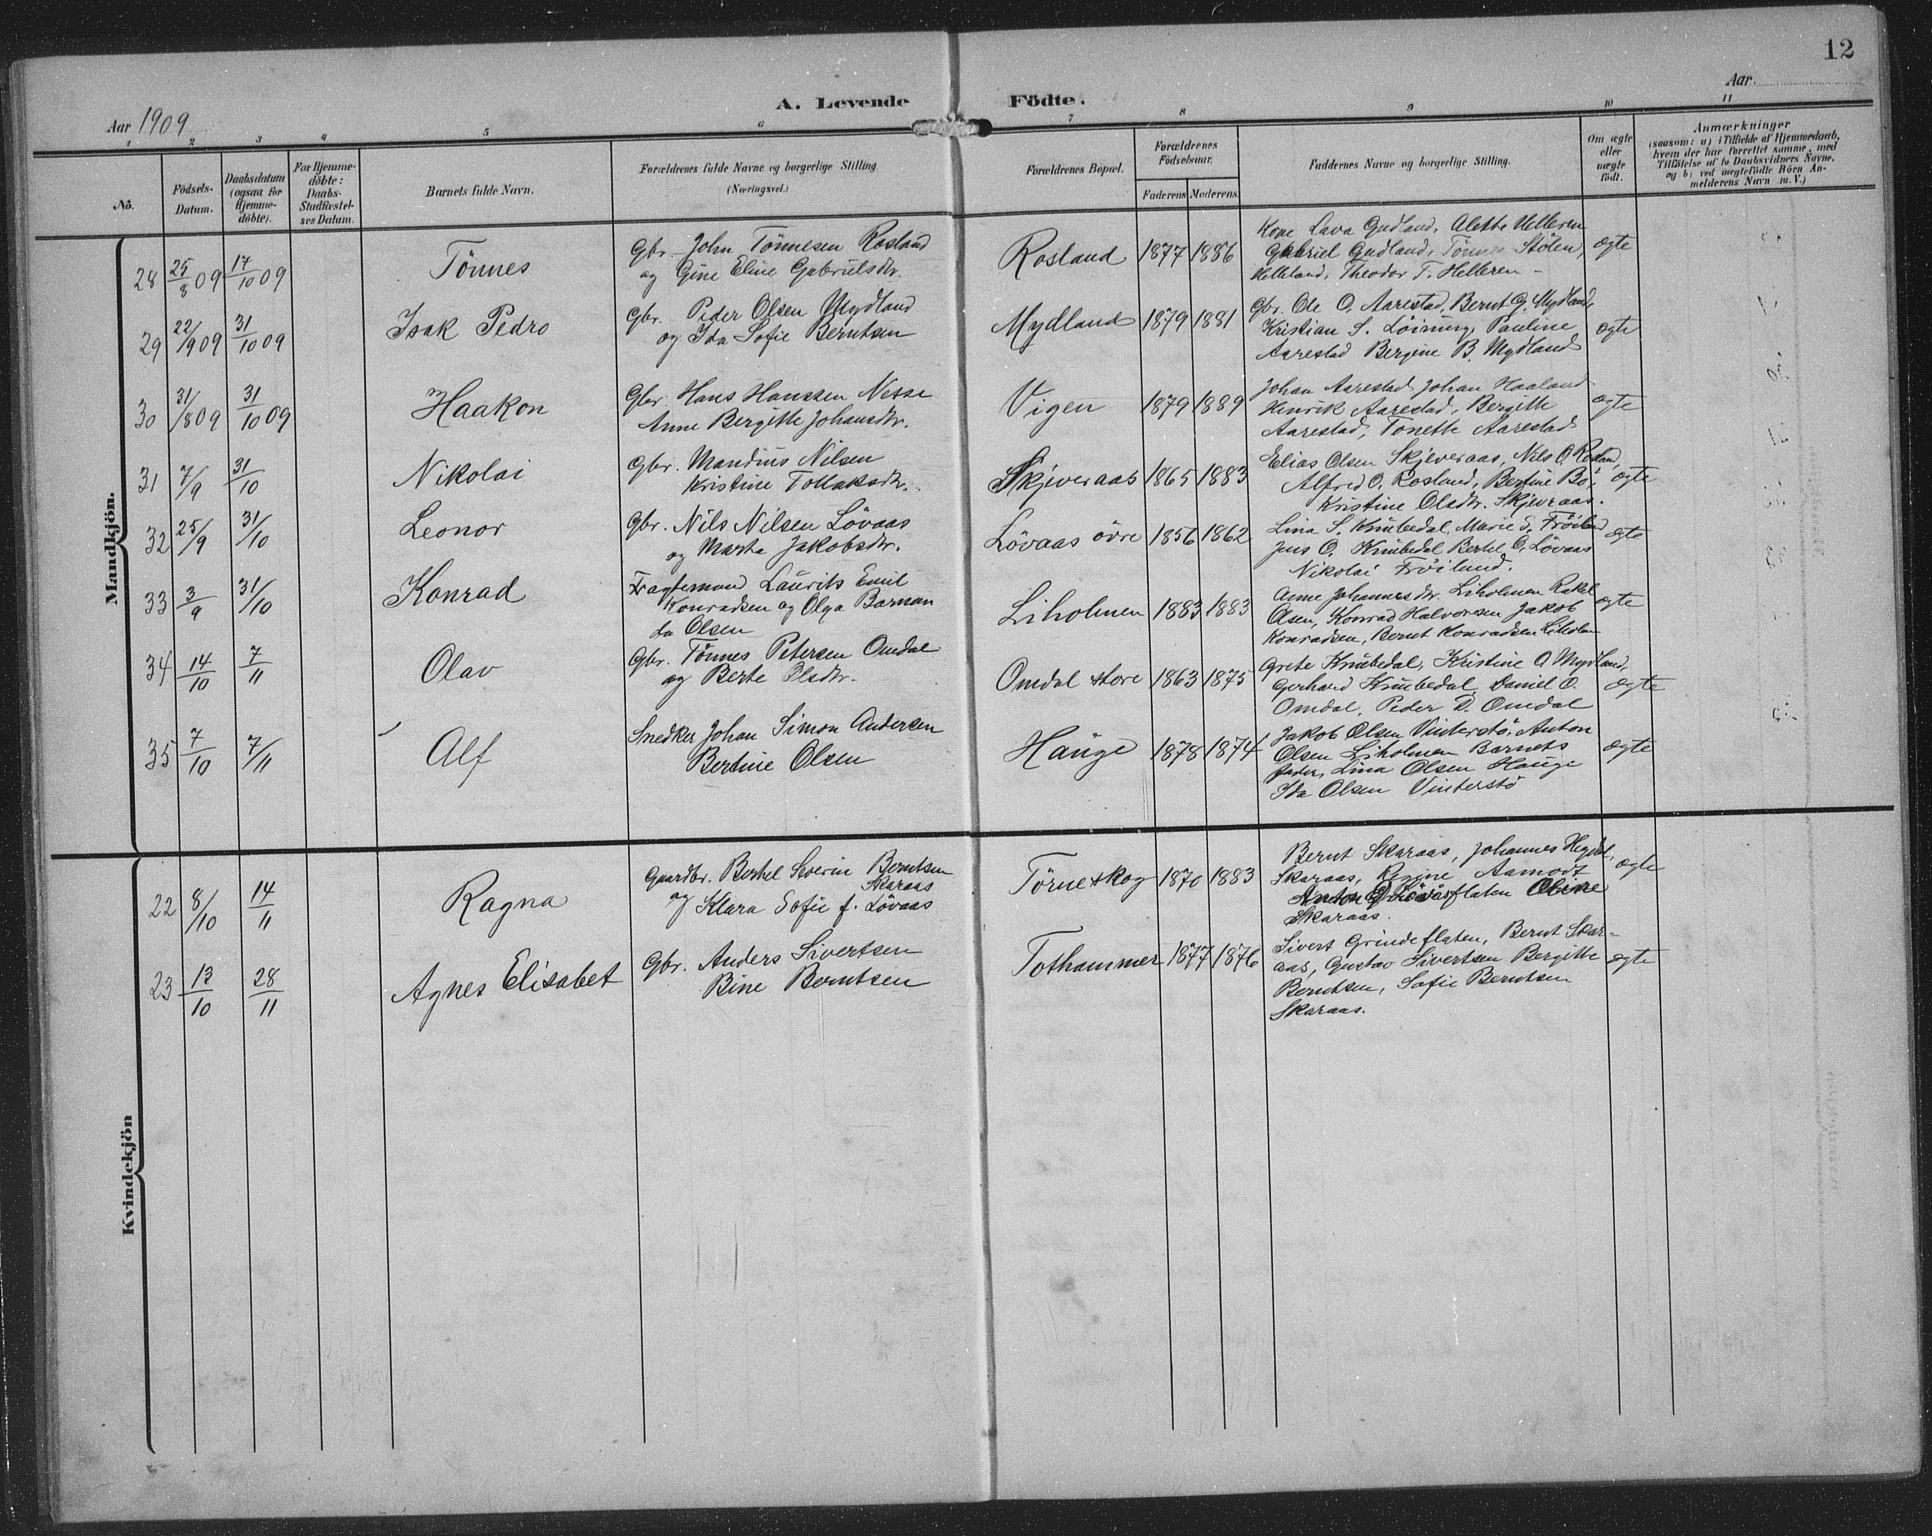 12
Aar 1909
A. Levende Födte.
Aar
1 2 3 4 5 6 7 8 9 10 11
No.
Födsels-Datum.
Daabsdatum (ogsaa for Hjemmedöbte).
For Hjemmedöbte: Daabs-Stadfæstelses Datum.
Barnets fulde Navn.
Forældrenes fulde Navne og borgerlige Stilling (Næringsvei.)
Forældrenes Bopæl.
Forældrenes Födselsaar.
Faderens Moderens
Faddernes Navne og borgerlige Stilling.
Om ægte eller uægte födt.
Anmærkninger
(saasom: a) i Tilfælde af Hjemmedaab, hvem der har forrettet samme, med Tilföielse af to Daabsvidners Navne, og b) ved uægtefödte Börn Anmelderens Navn m. V.)
Mandkjön.
28 25/8 09 17/10 09 Tönnes
Gbr. John Tönnesen Rosland
og Gine Eline Gabrielsdtr.
Rosland 1877 1886
Kone Lava Gudland, Alette Helleren
Gabriel Gudland, Stölen,
Helleland, Theodor T. Helleren -
ægte
29 22/9 09 31/10 09 Isak Pedro
Gbr. Peder Olsen Mydland
og Ida Sofie Berntsen
Mydland 1879 1881
Gbr. Ole O. Aarestad, Bernt O. Mydland
Kristian S. Löining, Pauline
Aarestad Bergine B. Mydland
ægte
30 31/8 09 31/10 09 Haakon
Gbr. Hans Hanssen Nesse
Anne Bergitte Johansdtr.
Vigen 1879 1889
Johan Aarestad Johan Haaland
Henrik Aarestad, Bergitte
Aarestad, Tonette Aarestad
ægte
31 7/9 31/10 Nikolai
Gbr. Mandius Nilsen
Kristine Tollaksdtr.
Skjeveraas 1865 1883
Elias Olsen Skjeveraas, Nils O. Rosland,
Alfred O. Rosland, Bertine Bö,
Kristine Olsdtr. Skjevraas.
ægte
32 25/9 31/10 Leonor
Gbr. Nils Nilsen Lövaas
og Marta Jakobsdtr.
Lövaas övre 1856 1862
Lina S. Knubedal, Marie S. Fröiland
Jens O. Knubedal Bertel O. Lövaas
Nikolai Fröiland.
ægte
33 3/9 31/10 Konrad
Fragtemand Laurits Emil
Konradsen og Olga Barnan
da Olsen
Liholmen 1883 1883
Anne Johannesdtr. Liholmen Rakel
Olsen, Konrad Halvorsen Jakob
Konradsen, Bernt Konradsen Liholm
ægte
34 14/10 7/11 Olav
Gbr. Tönnes Petersen Omdal
og Berte Olsdtr.
Omdal store 1863 1875
Grete Knubedal, Kristine O Mydland,
Gerhard Knubedal, Daniel O.
Omdal, Peder D. Omdal
ægte
35 7/10 7/11 Alf
Snedker Johan Simon Andersen
Bertine Olsen
Hauge 1878 1874
Jakob Olsen Vinterstö, Anton
Olsen Liholmen Barnets
fader, Lina Olsen Hauge
Ida Olsen Vinterstö
ægte
Kvindekjön
22 8/10 14/11 Ragna
Gaardbr. Bertel Severin Berntsen
Skaraas
og Klara Sofie f. Lövaas
Törneskog 1870 1883
Bernt Skaraas, Johannes
Skaraas, Regine Aamodt
Skaraas.
ægte
23 13/10 28/11 Agnes Elisabet
Gbr. Anders Sivertsen
Bine Berntsen
Tothammer 1877 1876
Sivert Grindeflaten, Bernt Skar-
aas, Gustav Sivertsen Bergitte
Berntsen, Sofie Berntsen
Skaraas.
ægte